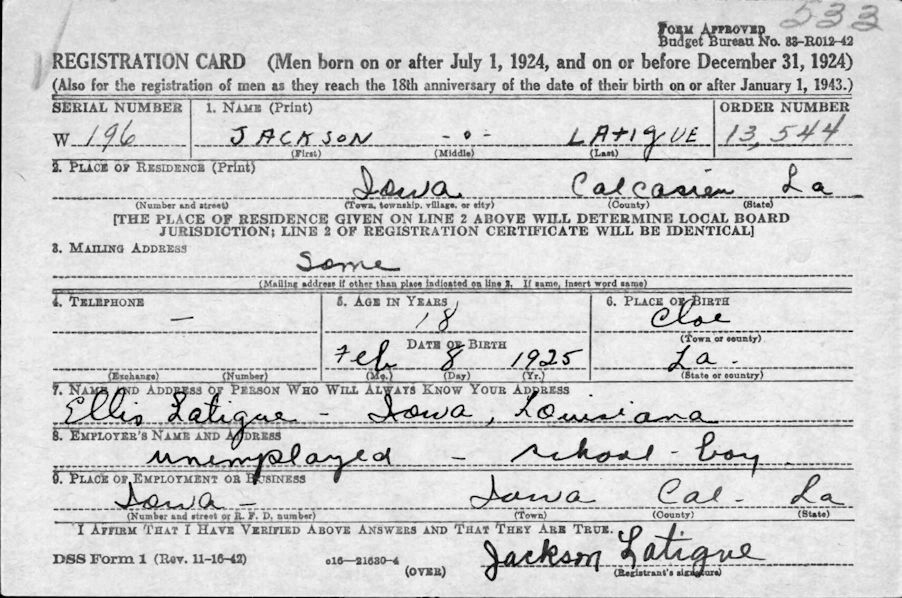 533
FORM APPROVED
Budget Bureau No. 33-R012-42
REGISTRATION CARD (Men born on or after July 1, 1924, and on or before December 31, 1924)
(Also for the registration of men as they reach the 18th anniversary of the date of their birth on or after January 1, 1943.)
SERIAL NUMBER 1. NAME (Print) ORDER NUMBER
W 196 JACKSON -0- LATIGUE 13,544
(First) (Middle) (Last)
2. PLACE OF RESIDENCE (Print)
Iowa Calcasieu La
(Number and street) (Town, township, village, or city) (County) (State)
[THE PLACE OF RESIDENCE GIVEN ON LINE 2 ABOVE WILL DETERMINE LOCAL BOARD
JURISDICTION; LINE 2 OF REGISTRATION CERTIFICATE WILL BE IDENTICAL]
3. MAILING ADDRESS
Same
(Mailing address if other than place indicated on line 2. If same, insert word same)
4. TELEPHONE 5. AGE IN YEARS 6. PLACE OF BIRTH
— 18 Cloe
DATE OF BIRTH (Town or county)
Feb 8 1925 La.
(Exchange) (Number) (Mo.) (Day) (Yr.) (State or country)
7. NAME AND ADDRESS OF PERSON WHO WILL ALWAYS KNOW YOUR ADDRESS
Ellis Latigue - Iowa, Louisiana
8. EMPLOYER'S NAME AND ADDRESS
unemployed - school-boy
9. PLACE OF EMPLOYMENT OR BUSINESS
Iowa - Iowa Cal- La
(Number and street or R. F. D. number) (Town) (County) (State)
I AFFIRM THAT I HAVE VERIFIED ABOVE ANSWERS AND THAT THEY ARE TRUE.
DSS Form 1 (Rev. 11-16-42) o16—21630-4 Jackson Latigue
(OVER) (Registrant's signature)